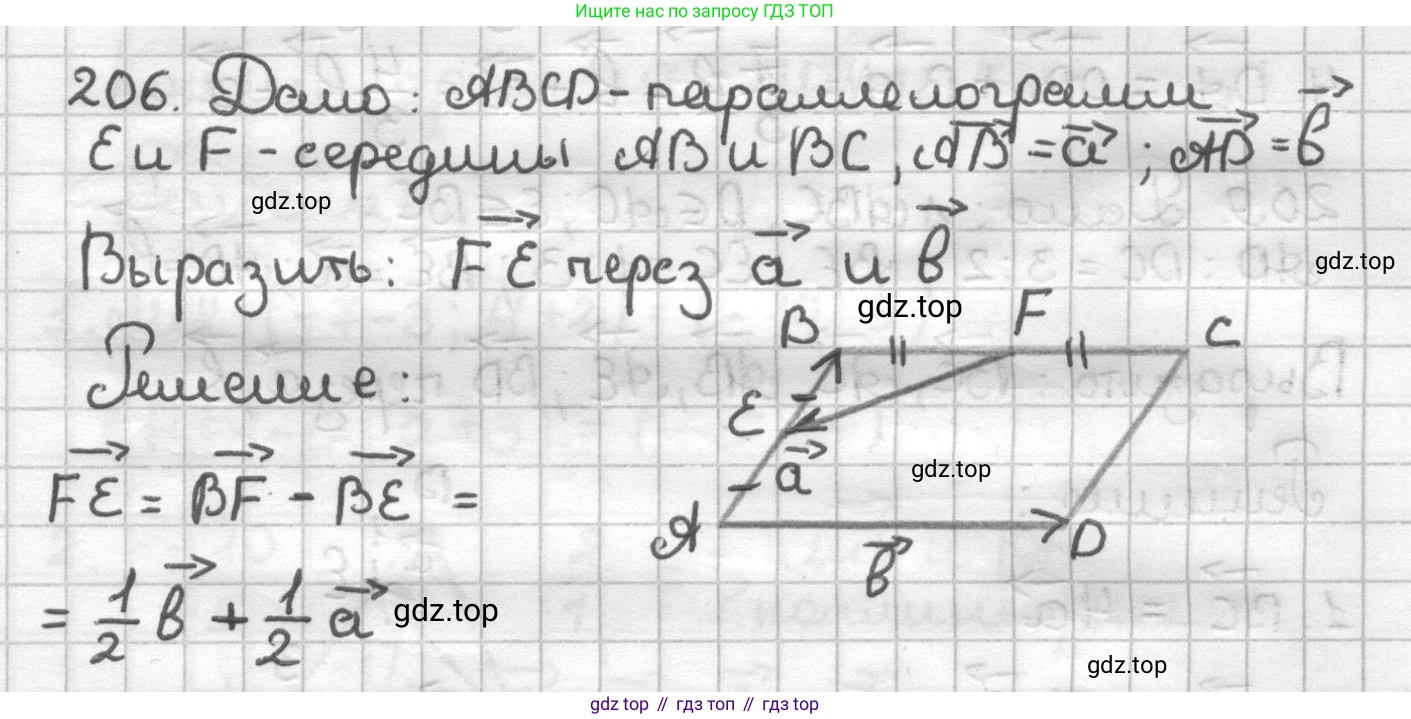 Ищите нас по запросу ГДЗ ТОП
206. Дано: ABCD - параллелограмм
E и F - середины AB и BC, AB⃗ = a⃗; AD⃗ = b⃗
gdz.top
Выразить: FE⃗ через a⃗ и b⃗
gdz.top
gdz.top
B F C
Решение:
E
a⃗
gdz.top
FE⃗ = BF⃗ - BE⃗ =
A D
b⃗
= 1/2 b⃗ + 1/2 a⃗
gdz.top
gdz.top
gdz top // гдз топ // gdz top